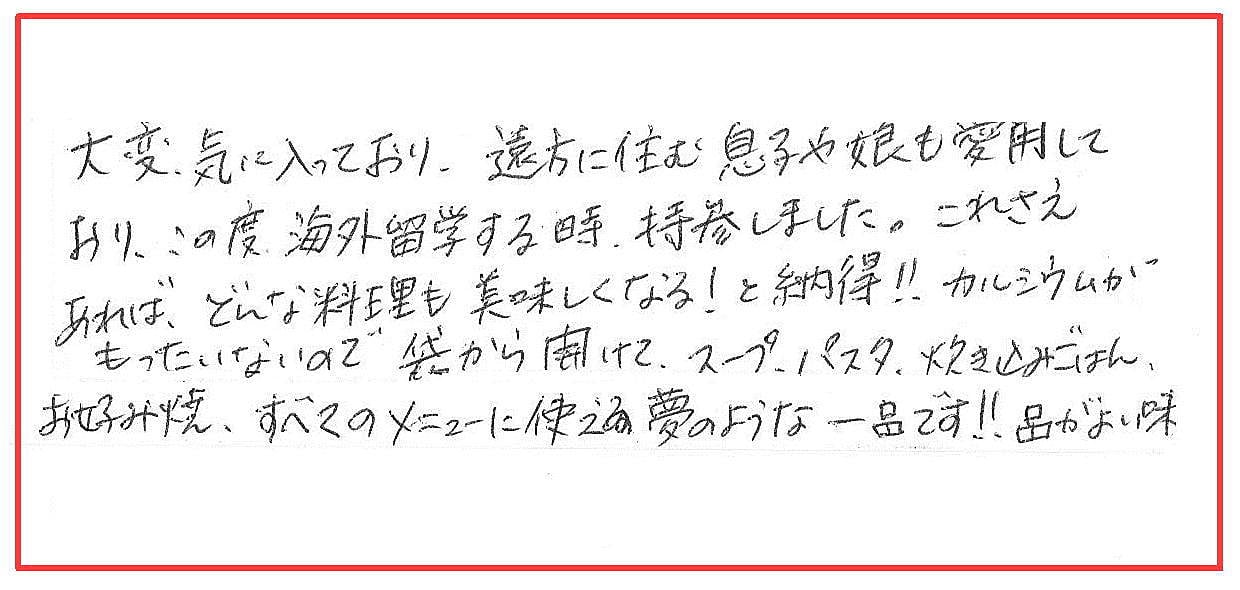 大変、気に入っており、遠方に住む息子や娘も愛用して
おり、この度、海外留学する時、持参しました。これさえ
あれば、どんな料理も美味しくなる!と納得!!カルシウムが
もったいないので袋から開けて、スープ、パスタ、炊き込みごはん、
お好み焼、すべてのメニューに使える夢のような一品です!!品がよい味